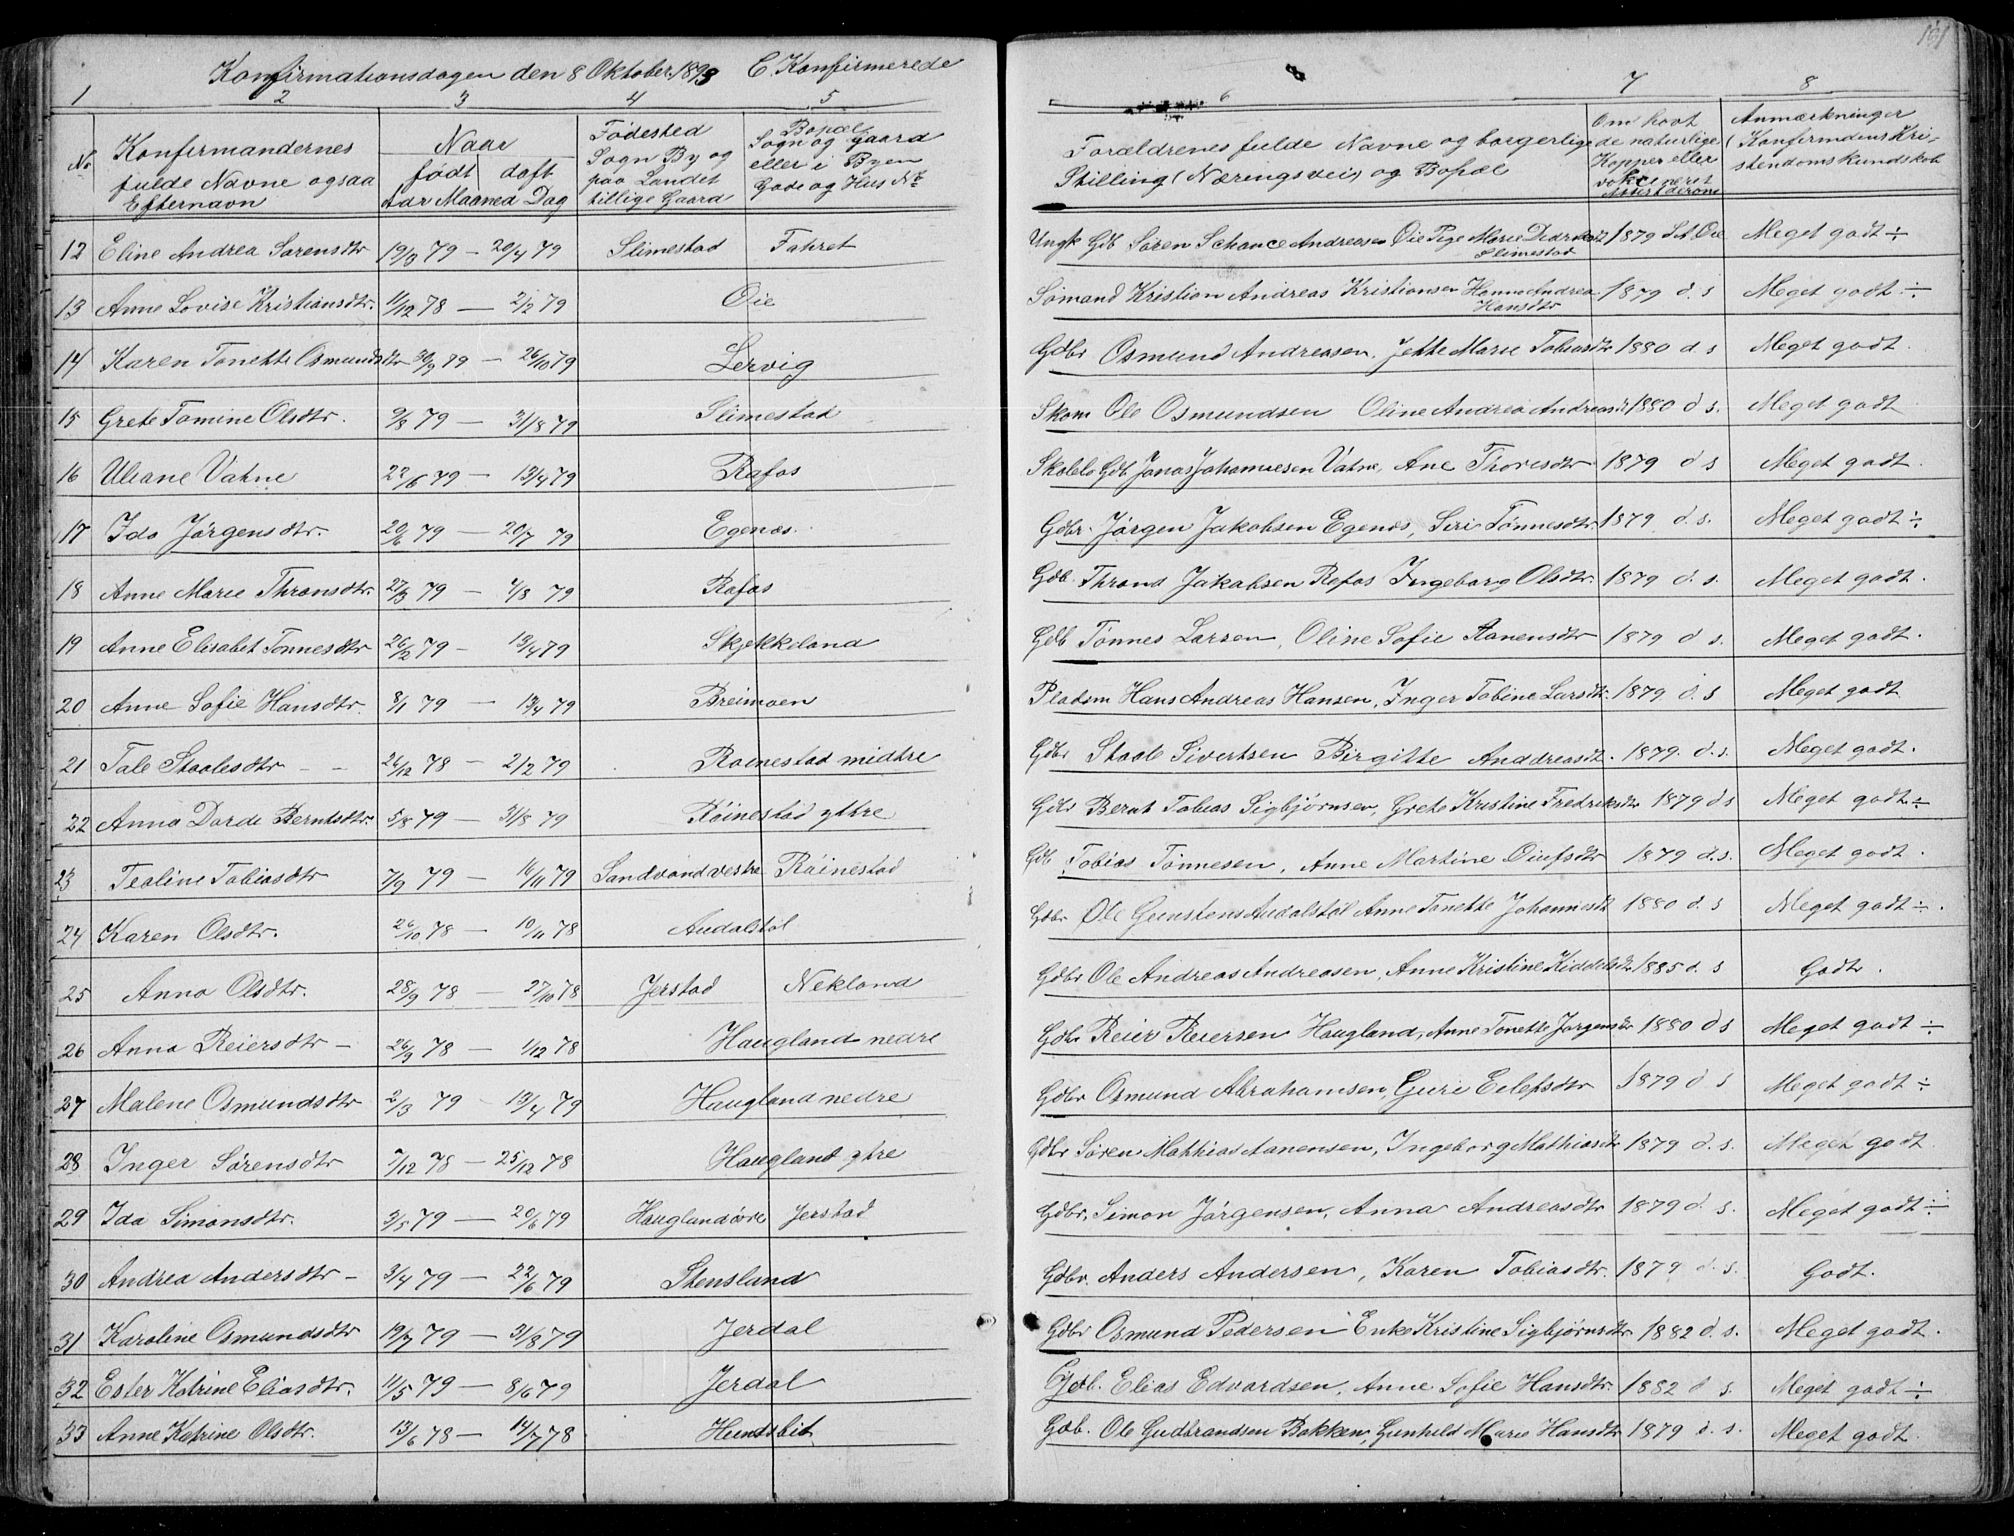 Konfirmationsdagen den 8 Oktober 1893 C. Konfirmerede
161
1 2 3 4 5 6 7 8
No Konfirmandernes fulde Navne ogsaa Efternavn
Naar
født døbt
Aar Maaned Dag
Fødested
Sogn By og
paa Landet
tillige Gaard
Bopæl
Sogn og Gaard
eller i Byen
Gade og Hus No
Forældrenes fulde Navne og borgerlige
Stilling (Næringsvei) og Bopæl
Om havt
de naturlige
Kopper eller
vokcineret
Anmærkninger
(Konfirmdens Kri-
stendomskundskab
12 Eline Andrea Sørensdtr 19/3 79 - 20/4 79 Slimestad Fahret Ungk Gdb Søren Schance Andreasen Øie Pige Marie Slimestad 1879 Øie Meget godt ÷
13 Anne Lovise Kristiansdtr. 11/12 78 - 2/2 79 Øie Sømand Kristian Andreas Kristiansen Hanna Andrea Hansdtr 1879 d. s Meget godt ÷
14 Karen Tonette Osmundsdtr 30/9 79 - 26/10 79 Lervig Gdbr Osmund Andreasen. Jette Marie Tobiasdtr 1880 d s Meget godt.
15 Grete Tomine Olsdtr. 9/8 79 - 31/8 79 Slimestad Skom Ole Osmundsen Oline Andrea Andreasd 1880 d s. Meget godt
16 Uliane Vatne 22/6 79 - 13/4 79 Rafos Skolelr Gdb Jonas Johannesen Vatne, Ane Thoresdtr 1879 d s Meget godt.
17 Ida Jørgensdtr. 20/6 79 - 20/7 79 Egenæs. Gdbr. Jørgen Jakobsen Egenæs, Siri Tønnesdtr 1879 d. s. Meget godt ÷
18 Anne Marie Thronsdtr. 27/3 79 - 4/8 79 Rafos Gdb. Thrond Jakobsen Rafos Ingeborg Olsdtr. 1879 d. s. Meget godt.
19 Anne Elisabet Tønnesdtr 26/12 79 - 13/4 79 Skjekkeland Gdb Tønnes Larsen, Oline Sofie Aanensdtr 1879 d s. Meget godt.
20 Anne Sofie Hansdtr. 8/1 79 - 13/4 79 Breimoen Pladsm Hans Andreas Hansen, Inger Tobine Larsdtr. 1879 d. s Meget godt
21 Tale Staalesdtr - - 26/12 78 - 2/2 79 Røinestad midtre Gdbr Staale Sivertsen Birgitte Anddreasdt. 1879. d. s. Meget godt.
22 Anna Dorde Berntsdtr. 5/8 79 - 31/8 79 Røinestad ytre Gdbr Bernt Tobias Sigbjørnsen, Grete Kristine Fredriksdtr 1879 d s Meget godt ÷
23 Tealine Tobiasdtr 7/9 79 - 16/11 79 Sandvand vestre Røinestad Gdb Tobias Tønnesen, Anne Martine Olufsdtr 1879 d. s. Meget godt.
24 Karen Olsdtr. 26/10 78 - 10/11 78 Audalstøl Gdbr Ole Gunstens Audalstøl Anne Tonette Johannesdt 1880 d. s Meget godt ÷.
25 Anna Olsdtr. 28/9 78 - 27/10 78 Jerstad Nekland Gdbr Ole Andreas Andreasen, Anne Kristine Kiddelsdtr 1885 d. s Godt.
26 Anna Reiersdtr - 26/9 78 - 1/12 78 Haugland nedre Gdbr Reier Reiersen Haugland, Anne Tonette Jørgensdtr 1880 d s Meget godt ÷
27 Malene Osmundsdtr 2/3 79 - 13/4 79 Haugland nedre Gdbr Osmund Abrahamsen, Guri Eilefsdtr 1879 d s Meget godt ÷
28 Inger Sørensdtr 7/12 78 - 25/12 78 Haugland ytre Gdbr Søren Matthias Aanensen, Ingeborg Mathiasdtr 1879 d. s. Meget godt
29 Ida Simonsdtr. 3/5 79 - 20/6 79 Haugland øvre Jerstad Gdbr, Simon Jørgensen, Anna Andreasdtr 1879 d. s. Meget godt ÷
30 Andrea Andersdtr - 3/4 79 - 22/6 79 Stensland Gdbr. Anders Andersen, Karen Tobiasdtr. 1879 d. s. Godt.
31 Karoline Osmundsdtr 19/7 79 - 31/8 79 Jerdal Gdbr Osmund Pedersen Enke Kristine Sigbjørnsdtr. 1882 d. s. Meget godt.
32 Ester Katrine Eliasdtr. 11/5 79 - 8/6 79 Jerdal Gdb. Elias Edvardsen, Anne Sofie Hansdtr. 1882 d s. Meget godt ÷
33 Anne Katrine Olsdtr. 13/6 78 - 14/7 78 Hundsbit Gdb. Ole Gudbrandsen Bakken, Gunhild Marie Hansdtr 1879 d. s. Meget godt